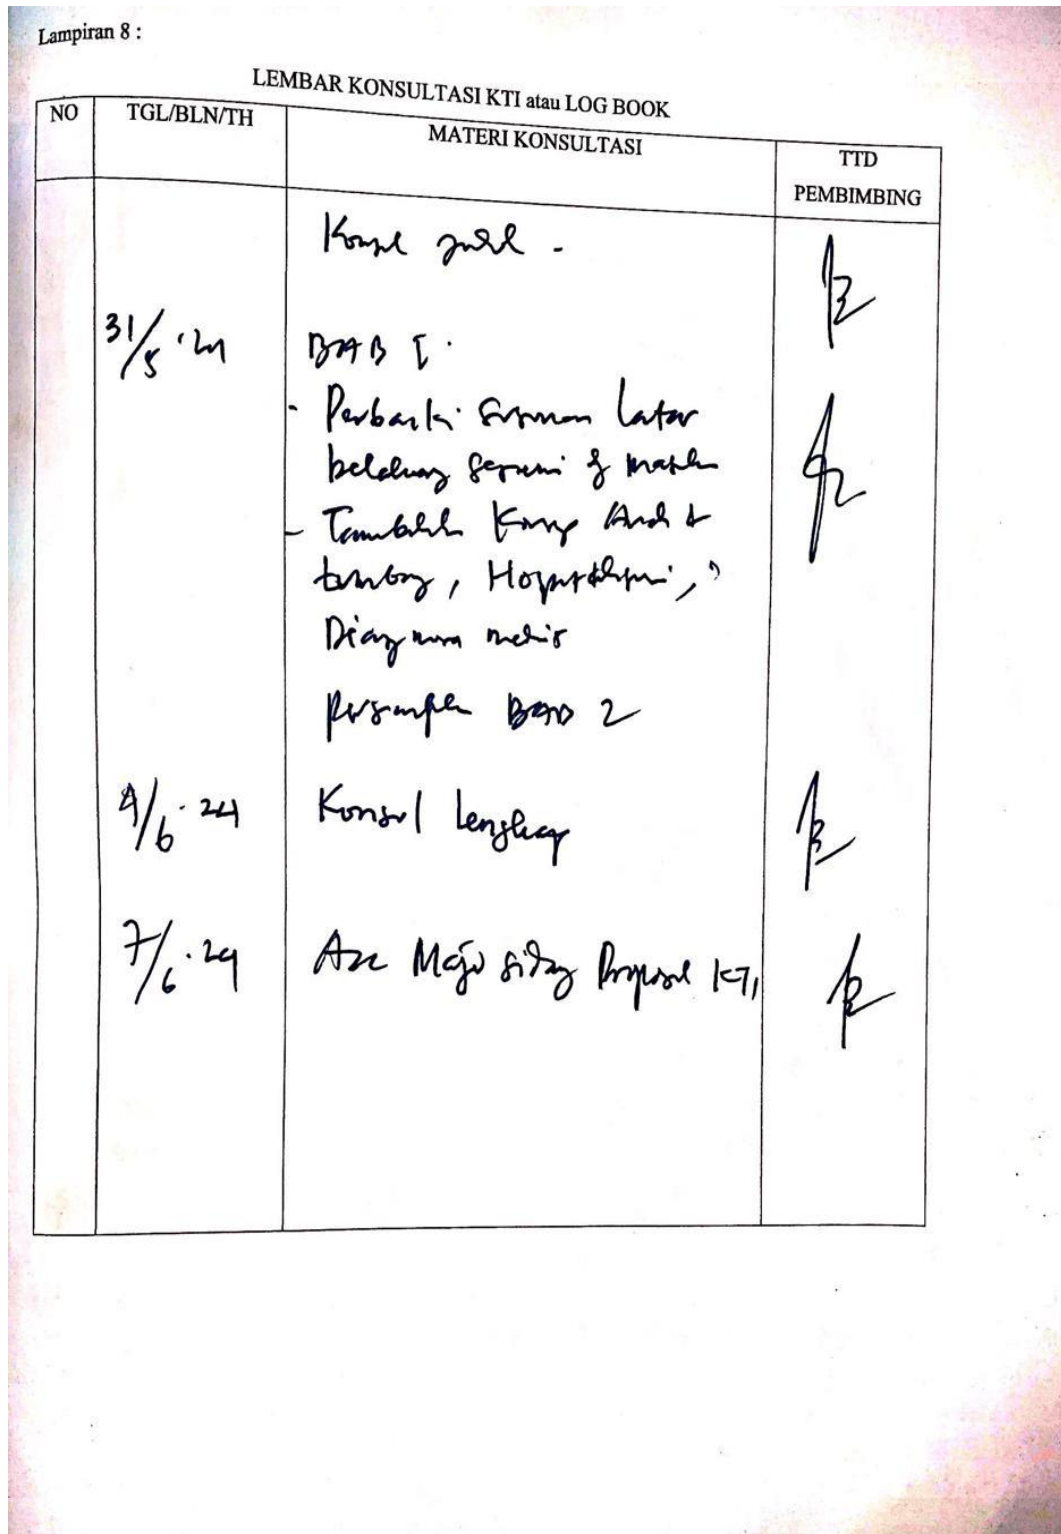 Lampiran 8 :
LEMBAR KONSULTASI KTI atau LOG BOOK
NO TGL/BLN/TH MATERI KONSULTASI TTD
PEMBIMBING
Konsul judul -
31/5 '24 BAB I.
- Perbaiki susunan Latar
belakang sesuai
- Tambahkan
tumbang,
Diagnosa medis
BAB 2
4/6 - 24 Konsul lengkap
7/6 - 24 Acc Maju sidang Proposal KTI